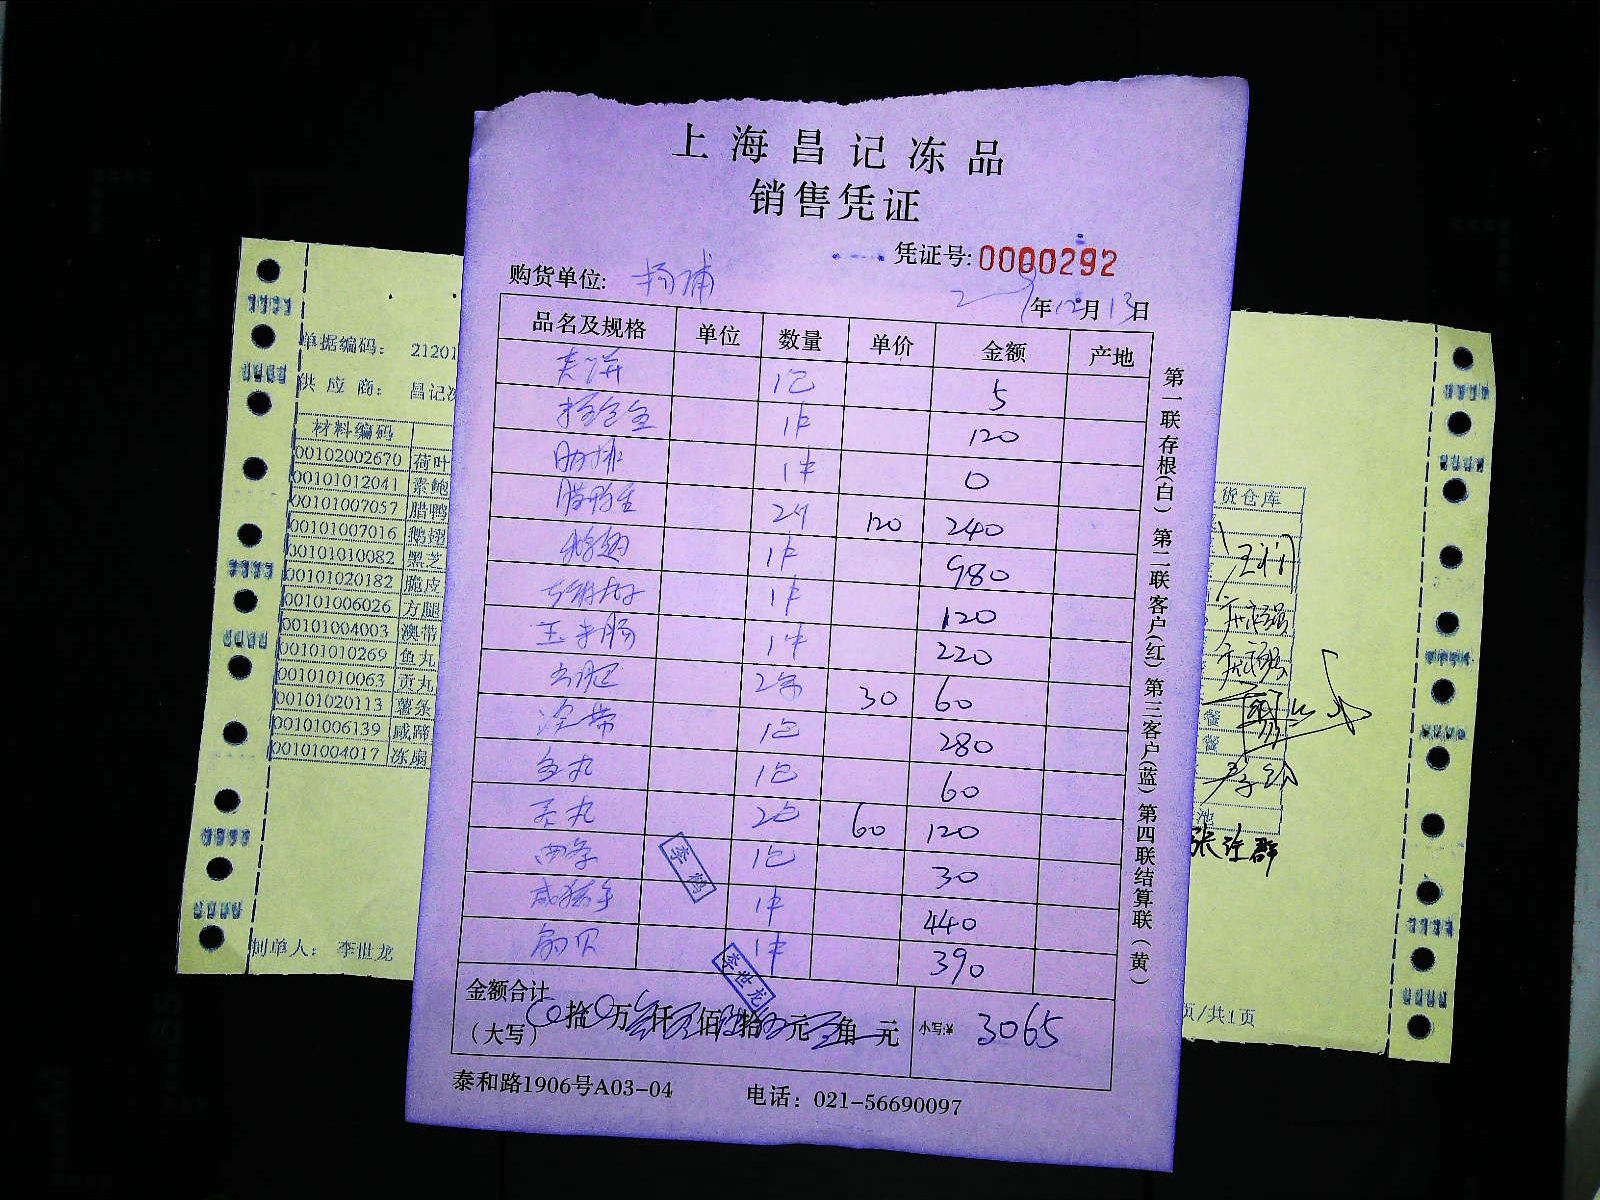 上海昌记冻品
销售凭证
凭证号: 0000292
购货单位: 杨浦
年12月13日
品名及规格 单位 数量 单价 金额 产地
1包 5
1件 120
肋排 1件 0
腊鸭 240 120
鹅翅 1件 980
1件 120
玉米肠 1件 220
方腿 30 60
1包 280
鱼丸 1包 60
贡丸 2包 60 120
薯条 1包 30
1件 440
扇贝 1件 390
金额合计
(大写) 拾 万 仟 佰 拾 元 角 元 小写:¥ 3065
泰和路1906号A03-04 电话: 021-56690097
第一联存根(白) 第二联客户(红) 第三客户(蓝) 第四联结算联(黄)
李世龙
单据编码: 21201
供应商: 昌记冻
材料编码
00102002670 荷叶
00101012041 素鲍
00101007057 腊鸭
00101007016 鹅翅
00101010082 黑芝
00101020182 脆皮
00101006026 方腿
00101004003 澳带
00101010269 鱼丸
00101010063 贡丸
00101020113 薯条
00101006139 咸蹄
00101004017 冻扇
制单人: 李世龙
货仓库
餐
餐
池
页/共1页